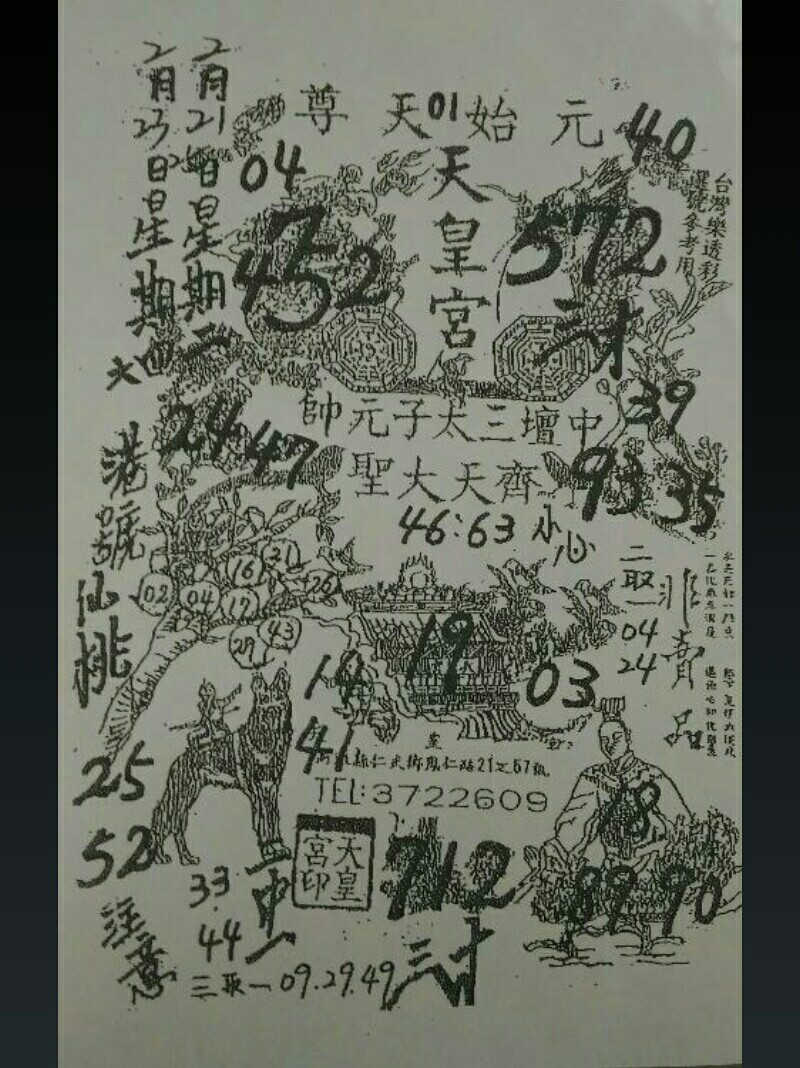 2月21日星期二
2月23日星期四
六
港號
仙桃
元始天尊
01
天皇宮
04
40
452
572
三才
台灣樂透彩
選號參考用
24
47
39
中壇三太子元帥
齊天大聖
93
35
46:63 小心
二取一
04
24
非賣品
16
21
02
04
17
26
43
14
19
03
41
仁武鄉鳳仁路21之67號
TEL:3722609
25
52
注意
33.44
一中一
天皇宮印
712
三才
18
89
90
三取一 09.29.49